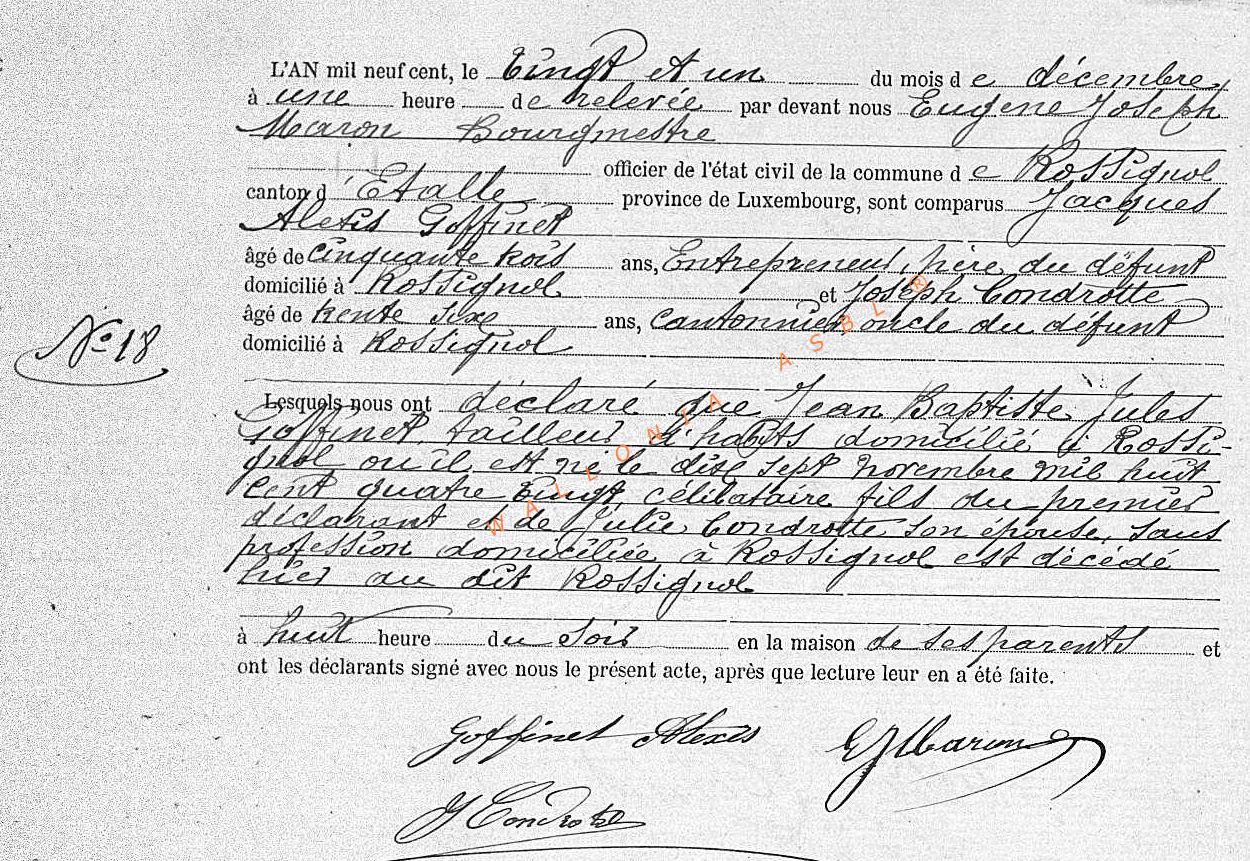 L'AN mil neuf cent, le vingt et un du mois d e décembre
à une heure de relevée par devant nous Eugène Joseph
Maron Bourgmestre
officier de l'état civil de la commune d e Rossignol
canton d'Etalle province de Luxembourg, sont comparus Jacques
Alexis Goffinet
âgé de cinquante trois ans, Entrepreneur, père du défunt
domicilié à Rossignol et Joseph Condrotte
âgé de trente sixe ans, cantonnier oncle du défunt
domicilié à Rossignol
N° 18
Lesquels nous ont déclaré que Jean Baptiste Jules
Goffinet, tailleur d'habits domicilié à Rossi-
gnol ou il est né le dix sept novembre mil huit
cent quatre vingt célibataire fils du premier
déclarant et de Julie Condrotte son épouse, sans
profession domiciliée à Rossignol est décédé
hier au dit Rossignol
à huit heure du soir en la maison de ses parents et
ont les déclarants signé avec nous le présent acte, après que lecture leur en a été faite.
Goffinet Alexis EJMaron
J Condrotte
WALLONIA ASBL ®